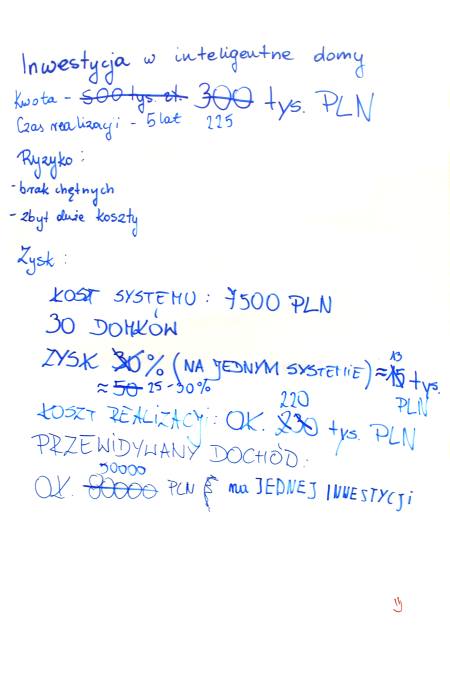 Inwestycja w inteligentne domy
Kwota - 500 tys. zł. 300 tys. PLN
Czas realizacji - 5 lat 225
Ryzyko :
- brak chętnych
- zbyt duże koszty
Zysk :
KOSZT SYSTEMU : 7500 PLN
30 DOMKÓW
ZYSK 30% (NA JEDNYM SYSTEMIE) ≈ 15 tys.
13
≈ 50 25 - 30% PLN
220
KOSZT REALIZACJI: OK. 230 tys. PLN
PRZEWIDYWANY DOCHÓD:
30000
OK. 80000 PLN na JEDNEJ INWESTYCJI